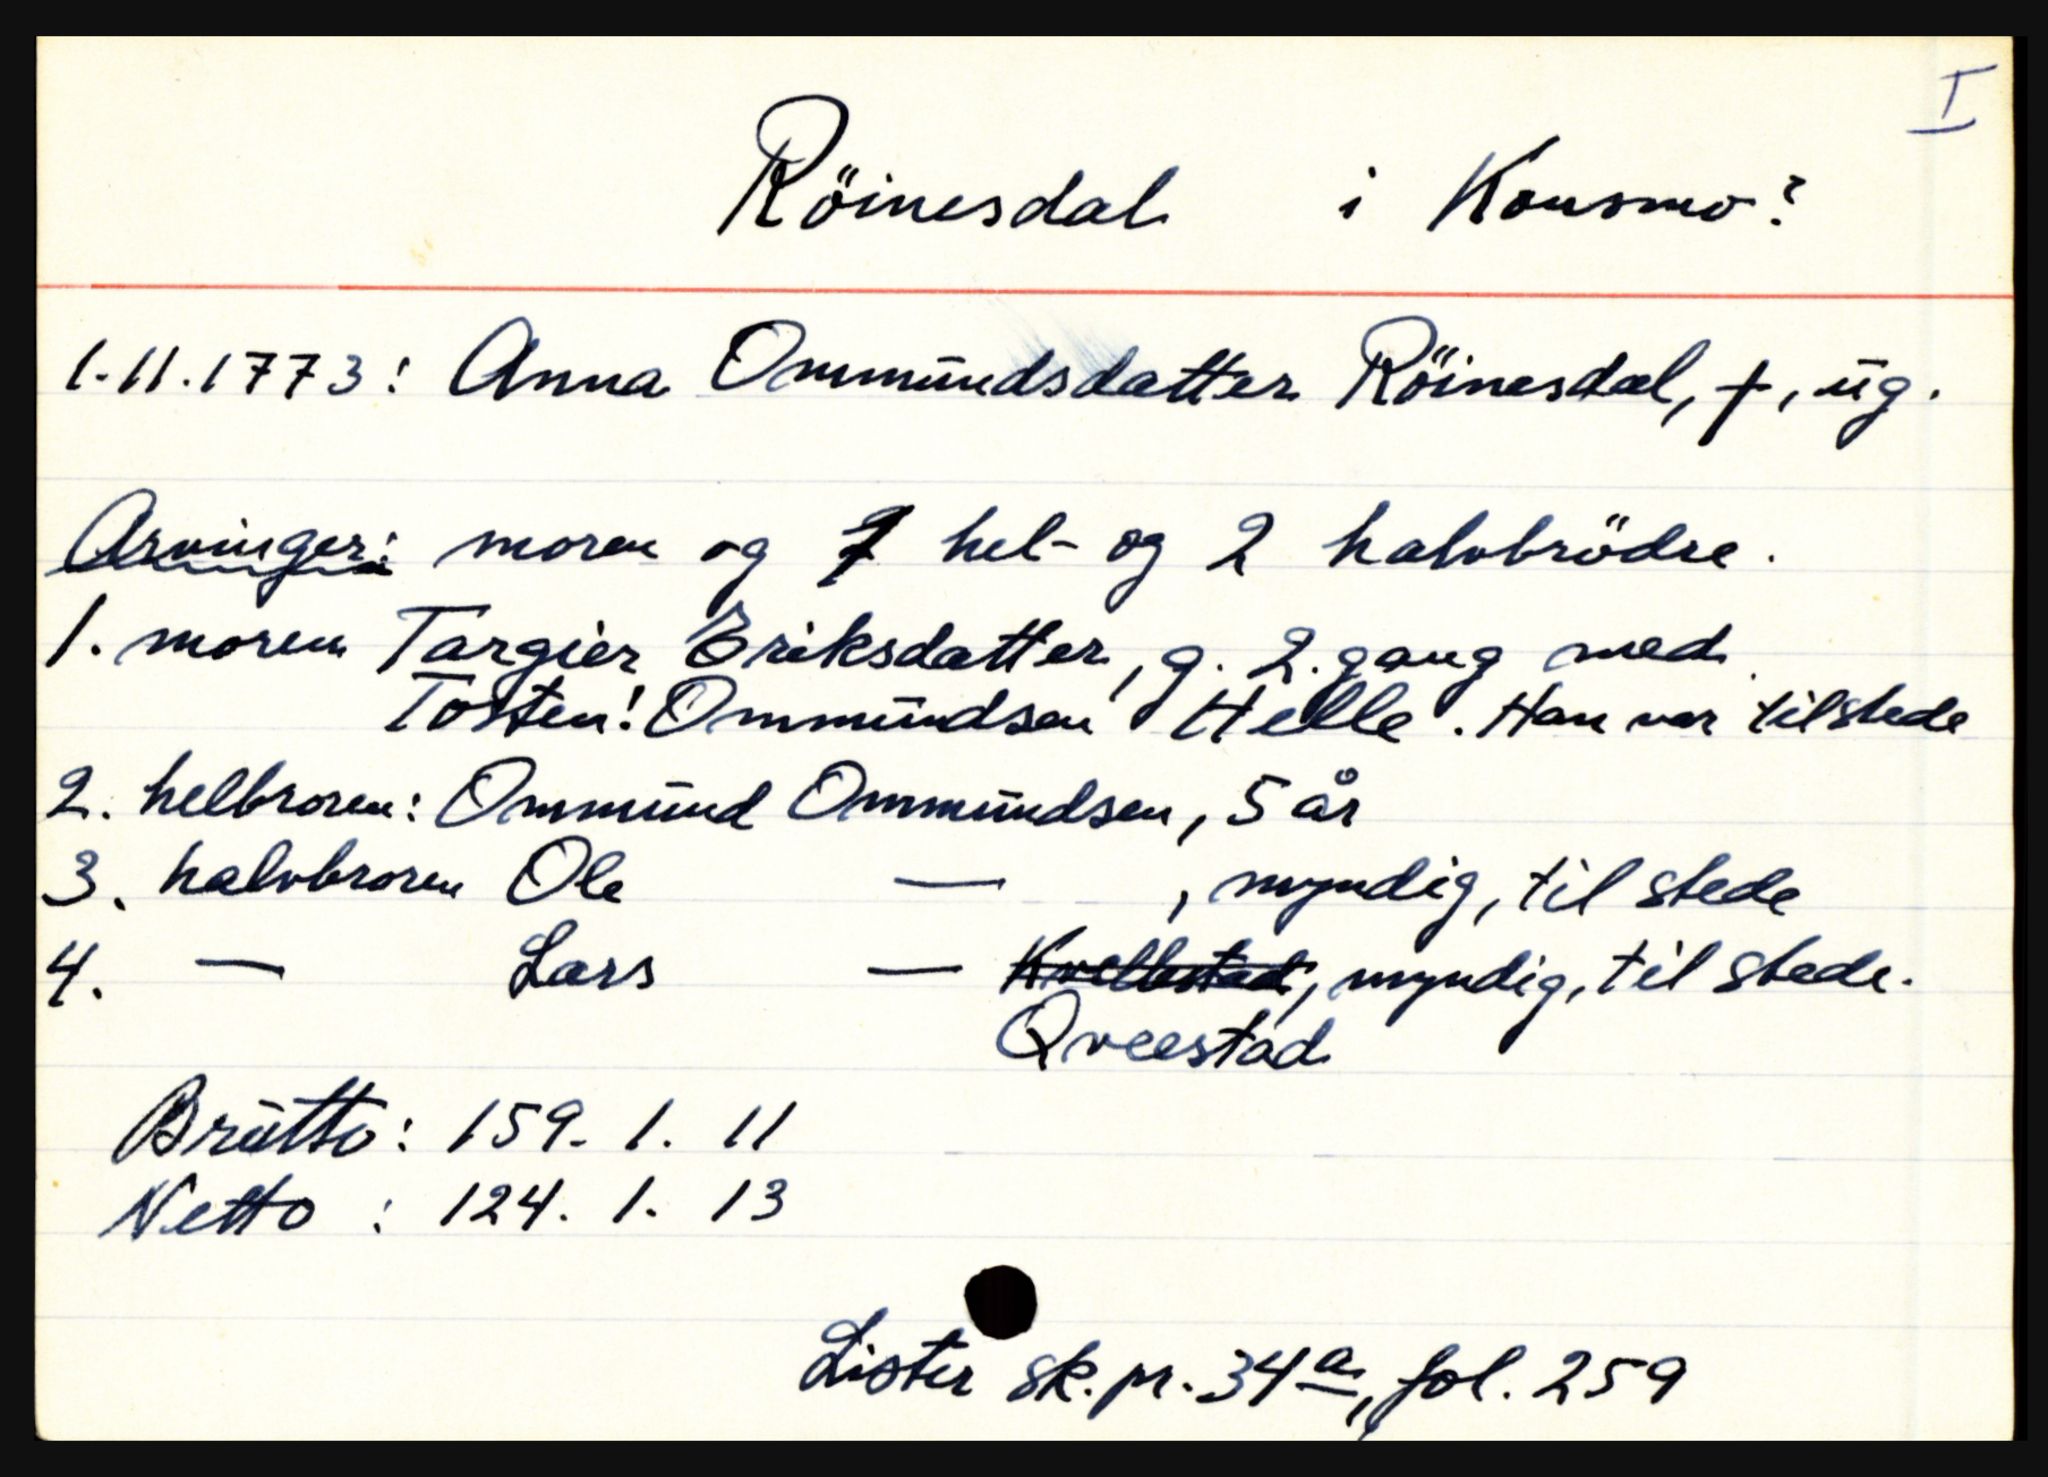 I
Röinesdal i Konsmo?
1.11.1773: Anna Ommundsdatter Röinesdal, †, ug.
Arvinger: moren og 1 hel- og 2 halvbrödre.
1. moren Targier Eriksdatter, g. 2. gang med
Tosten! Ommundsen Helle. Han var tilstede
2. helbroren: Ommund Ommundsen, 5 år
3. halvbroren Ole — , myndig, til stede
4. — Lars — Kvellestad, myndig, til stede.
Qveestad
Brutto: 159. 1. 11
Netto : 124. 1. 13
Lister sk. pr. 34a, fol. 259